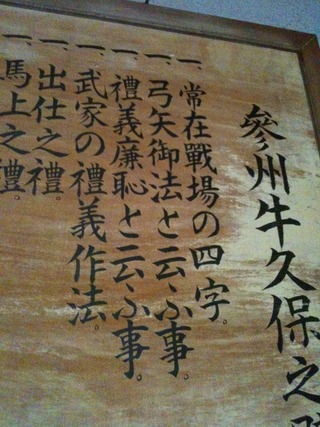 參州牛久保之
一、常在戰場の四字。
一、弓矢御法と云ふ事。
一、禮義廉恥と云ふ事。
一、武家の禮義作法。
一、出仕之禮。
一、馬上之禮。